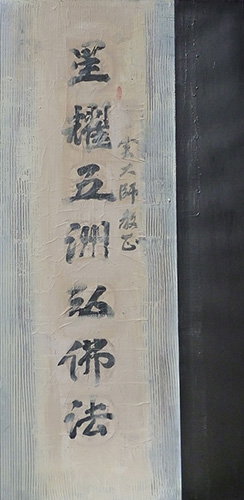 大師教正
星耀五洲弘佛法